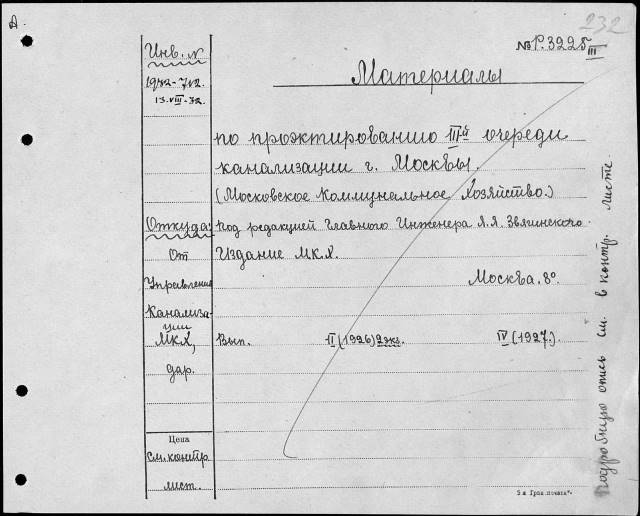 А.
232
Инв. №
1972-712.
13.VIII-32.
№ Р.3225
III
Материалы
по проэктированию III-й очереди
канализации г. Москвы.
(Московское Коммунальное Хозяйство.)
Откуда:
Под редакцией Главного Инженера Я.Я. Звягинского
От
Издание М.К.Х.
Управления
Москва. 8°.
Канализа-
ции
МКХ,
Вып. II (1926) 2 экз. IV (1927.)
дар.
Цена
см. контр.
лист.
Подробную опись см. в контр. листе.